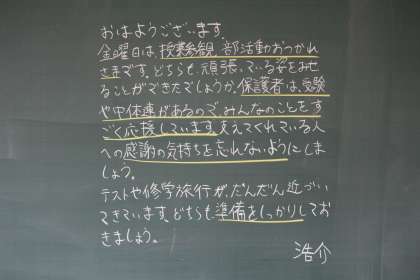 おはようございます。
金曜日は、授業参観、部活動おつかれ
さまです。どちらも、頑張っている姿をみせ
ることができたでしょうか。保護者は、受験
や中体連があるので、みんなのことをす
ごく応援しています。支えてくれている人
への感謝の気持ちを忘れないようにしま
しょう。
テストや修学旅行が、だんだん近づい
てきています。どちらも準備をしっかりしてお
きましょう。
浩介